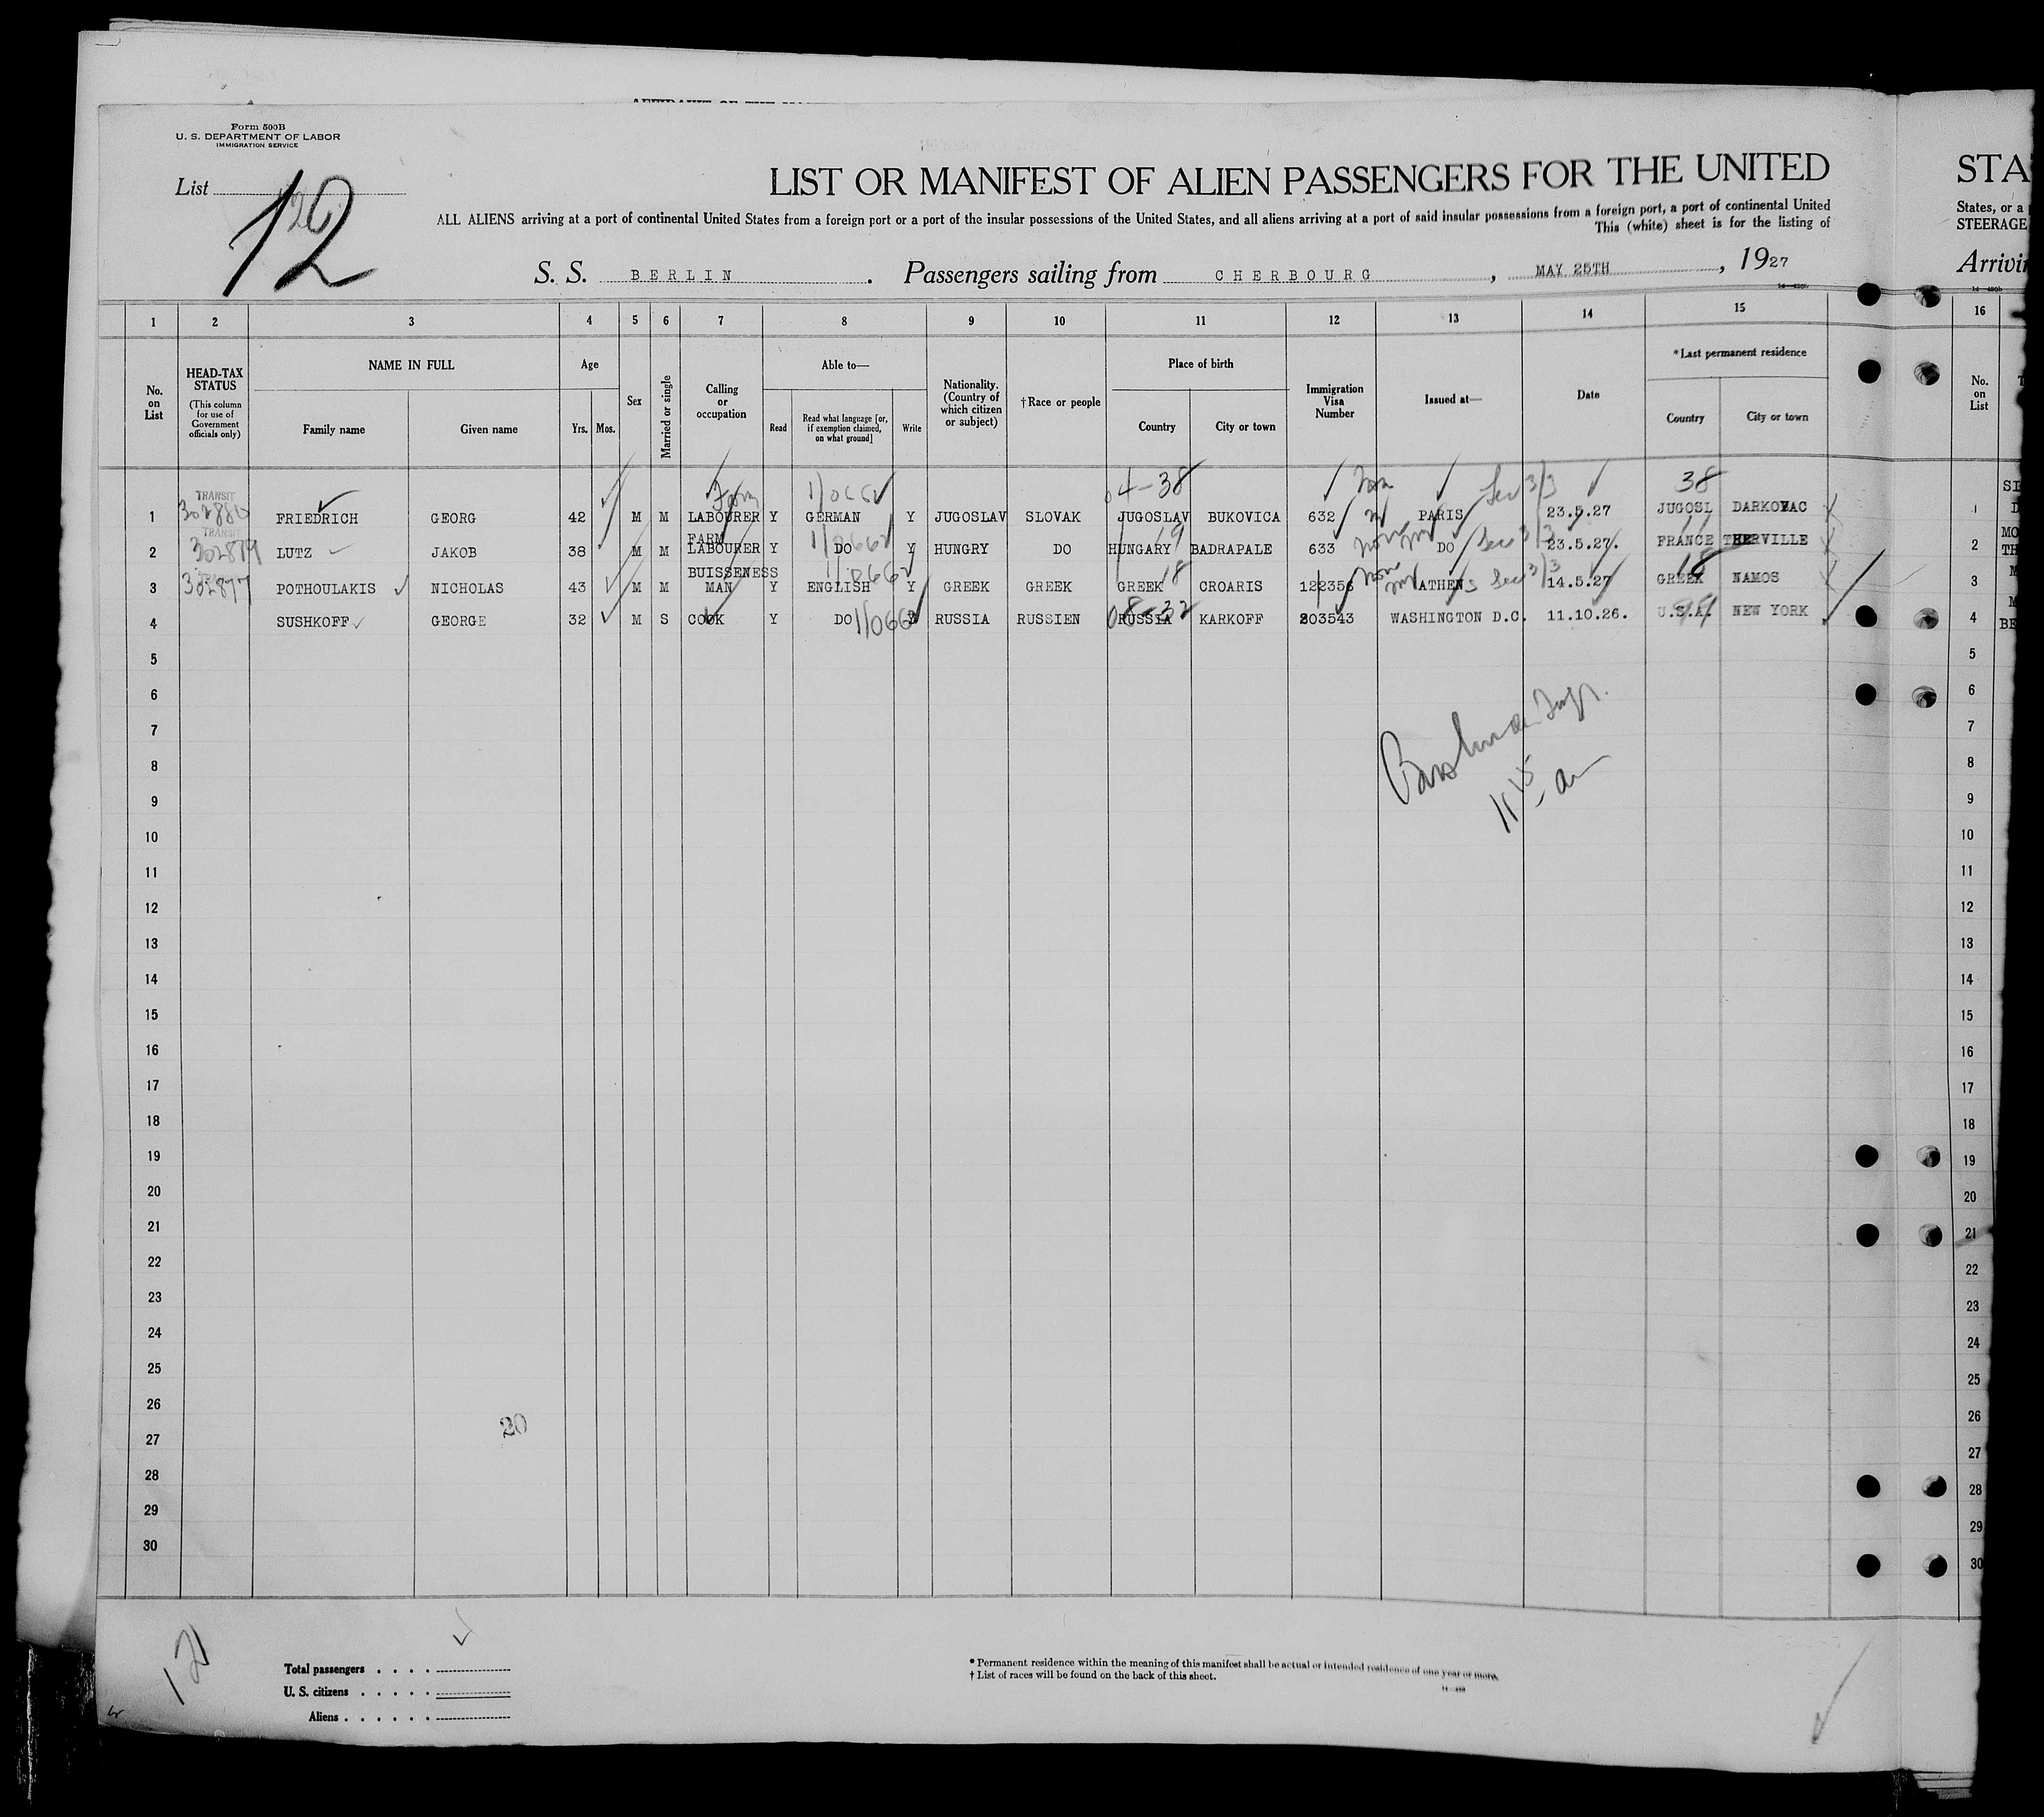 Form 500B
U. S. DEPARTMENT OF LABOR
IMMIGRATION SERVICE
List
12
20
LIST OR MANIFEST OF ALIEN PASSENGERS FOR THE UNITED
STA
ALL ALIENS arriving at a port of continental United States from a foreign port or a port of the insular possessions of the United States, and all aliens arriving at a port of said insular possessions from a foreign port, a port of continental United
States, or a
This (white) sheet is for the listing of
STEERAGE
S. S. BERLIN. Passengers sailing from CHERBOURG, MAY 25TH, 1927
1 2 3 4 5 6 7 8 9 10 11 12 13 14 15 16
No. on List
HEAD-TAX STATUS (This column for use of Government officials only)
NAME IN FULL
Family name Given name
Age
Yrs. Mos.
Sex
Married or single
Calling or occupation
Able to—
Read
Read what language [or, if exemption claimed, on what ground]
Write
Nationality. (Country of which citizen or subject)
†Race or people
Place of birth
Country City or town
Immigration Visa Number
Issued at—
Date
*Last permanent residence
Country City or town
No. on List
04-38 38
TRANSIT Farm
1 302880 FRIEDRICH GEORG 42 M M LABOURER Y GERMAN Y JUGOSLAV SLOVAK JUGOSLAV BUKOVICA 632 PARIS Sec 3/3 23.5.27 JUGOSL DARKOVAC 1
TRANSIT FARM
2 302879 LUTZ JAKOB 38 M M LABOURER Y DO Y HUNGRY DO HUNGARY BADRAPALE 633 DO Sec 3/3 23.5.27. FRANCE THERVILLE 2
BUISSENESS
3 302877 POTHOULAKIS NICHOLAS 43 M M MAN Y ENGLISH Y GREEK GREEK GREEK CROARIS 122356 none ATHENS Sec 3/3 14.5.27 GREEK NAMOS 3
4 SUSHKOFF GEORGE 32 M S COOK Y DO RUSSIA RUSSIEN RUSSIA 08-32 KARKOFF 203543 WASHINGTON D.C. 11.10.26. U.S.A. NEW YORK 4 BE
5 5
6 6
7 7
8 8
9 9
10 10
11 11
12 12
13 13
14 14
15 15
16 16
17 17
18 18
19 19
20 20
21 21
22 22
23 23
24 24
25 25
26 26
27 27
28 28
29 29
30 30
11 15 am
20
Total passengers
U. S. citizens
Aliens
* Permanent residence within the meaning of this manifest shall be actual or intended residence of one year or more.
† List of races will be found on the back of this sheet.